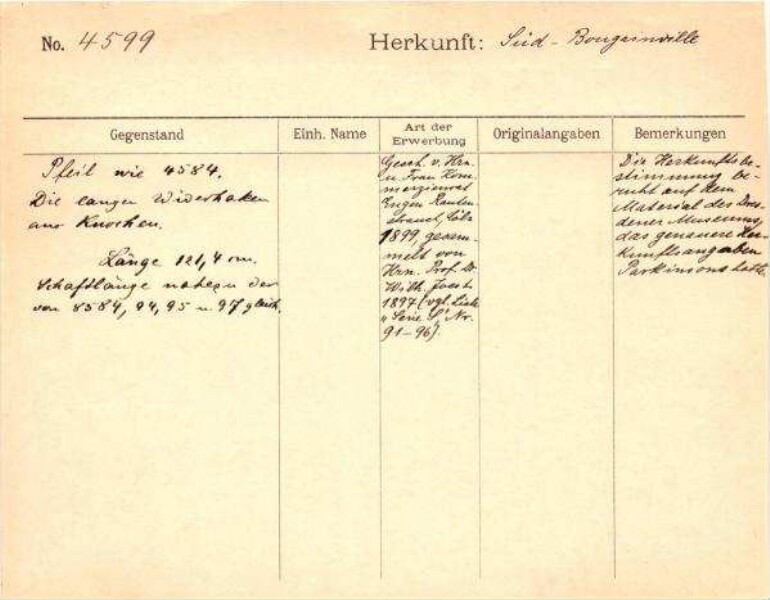 No. 4599
Herkunft: Süd-Bougainville
Gegenstand
Einh. Name
Art der Erwerbung
Originalangaben
Bemerkungen
Pfeil wie 4584.
Die langen Widerhaken
aus Knochen.
Länge 121,4 cm.
Schaftlänge nahezu der
von 8584, 94, 95 u. 97 gleich.
Gesch. v. Hrn.
u. Frau Kom-
merzienrat
Eugen Rauten-
strauch, Cöln
1899, gesam-
melt von
Hrn. Prof. Dr.
Wilh. Joest
1897 (vgl. Liste
"Serie S", Nr.
91-96).
Die Herkunftsbe-
stimmung be-
ruht auf dem
Material des Dres-
dener Museums,
das genauere Her-
kunftsangaben
Parkinsons hatte.